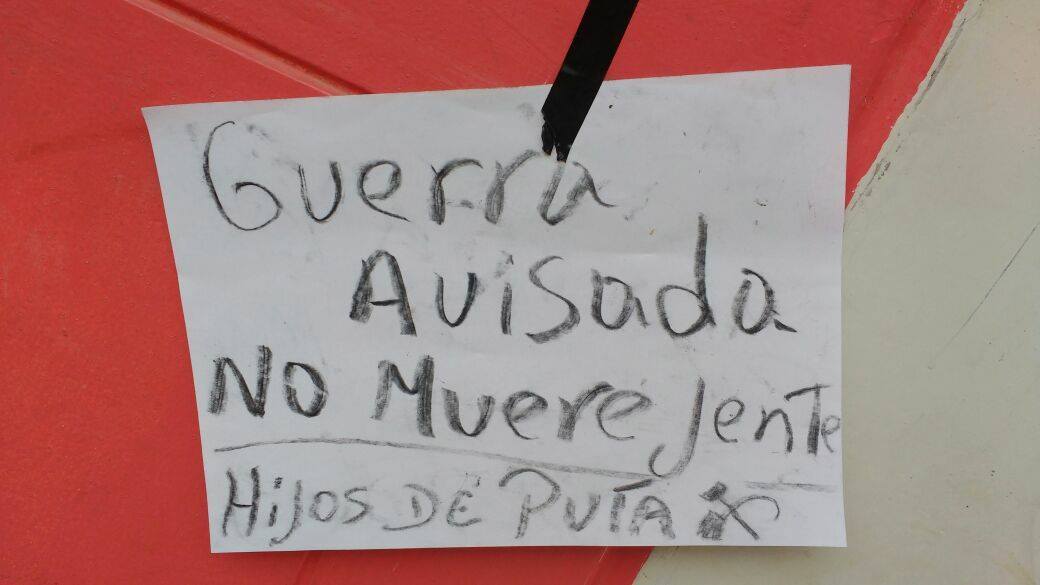 Guerra
Avisada
No Muere Jente
Hijos DE PUTA